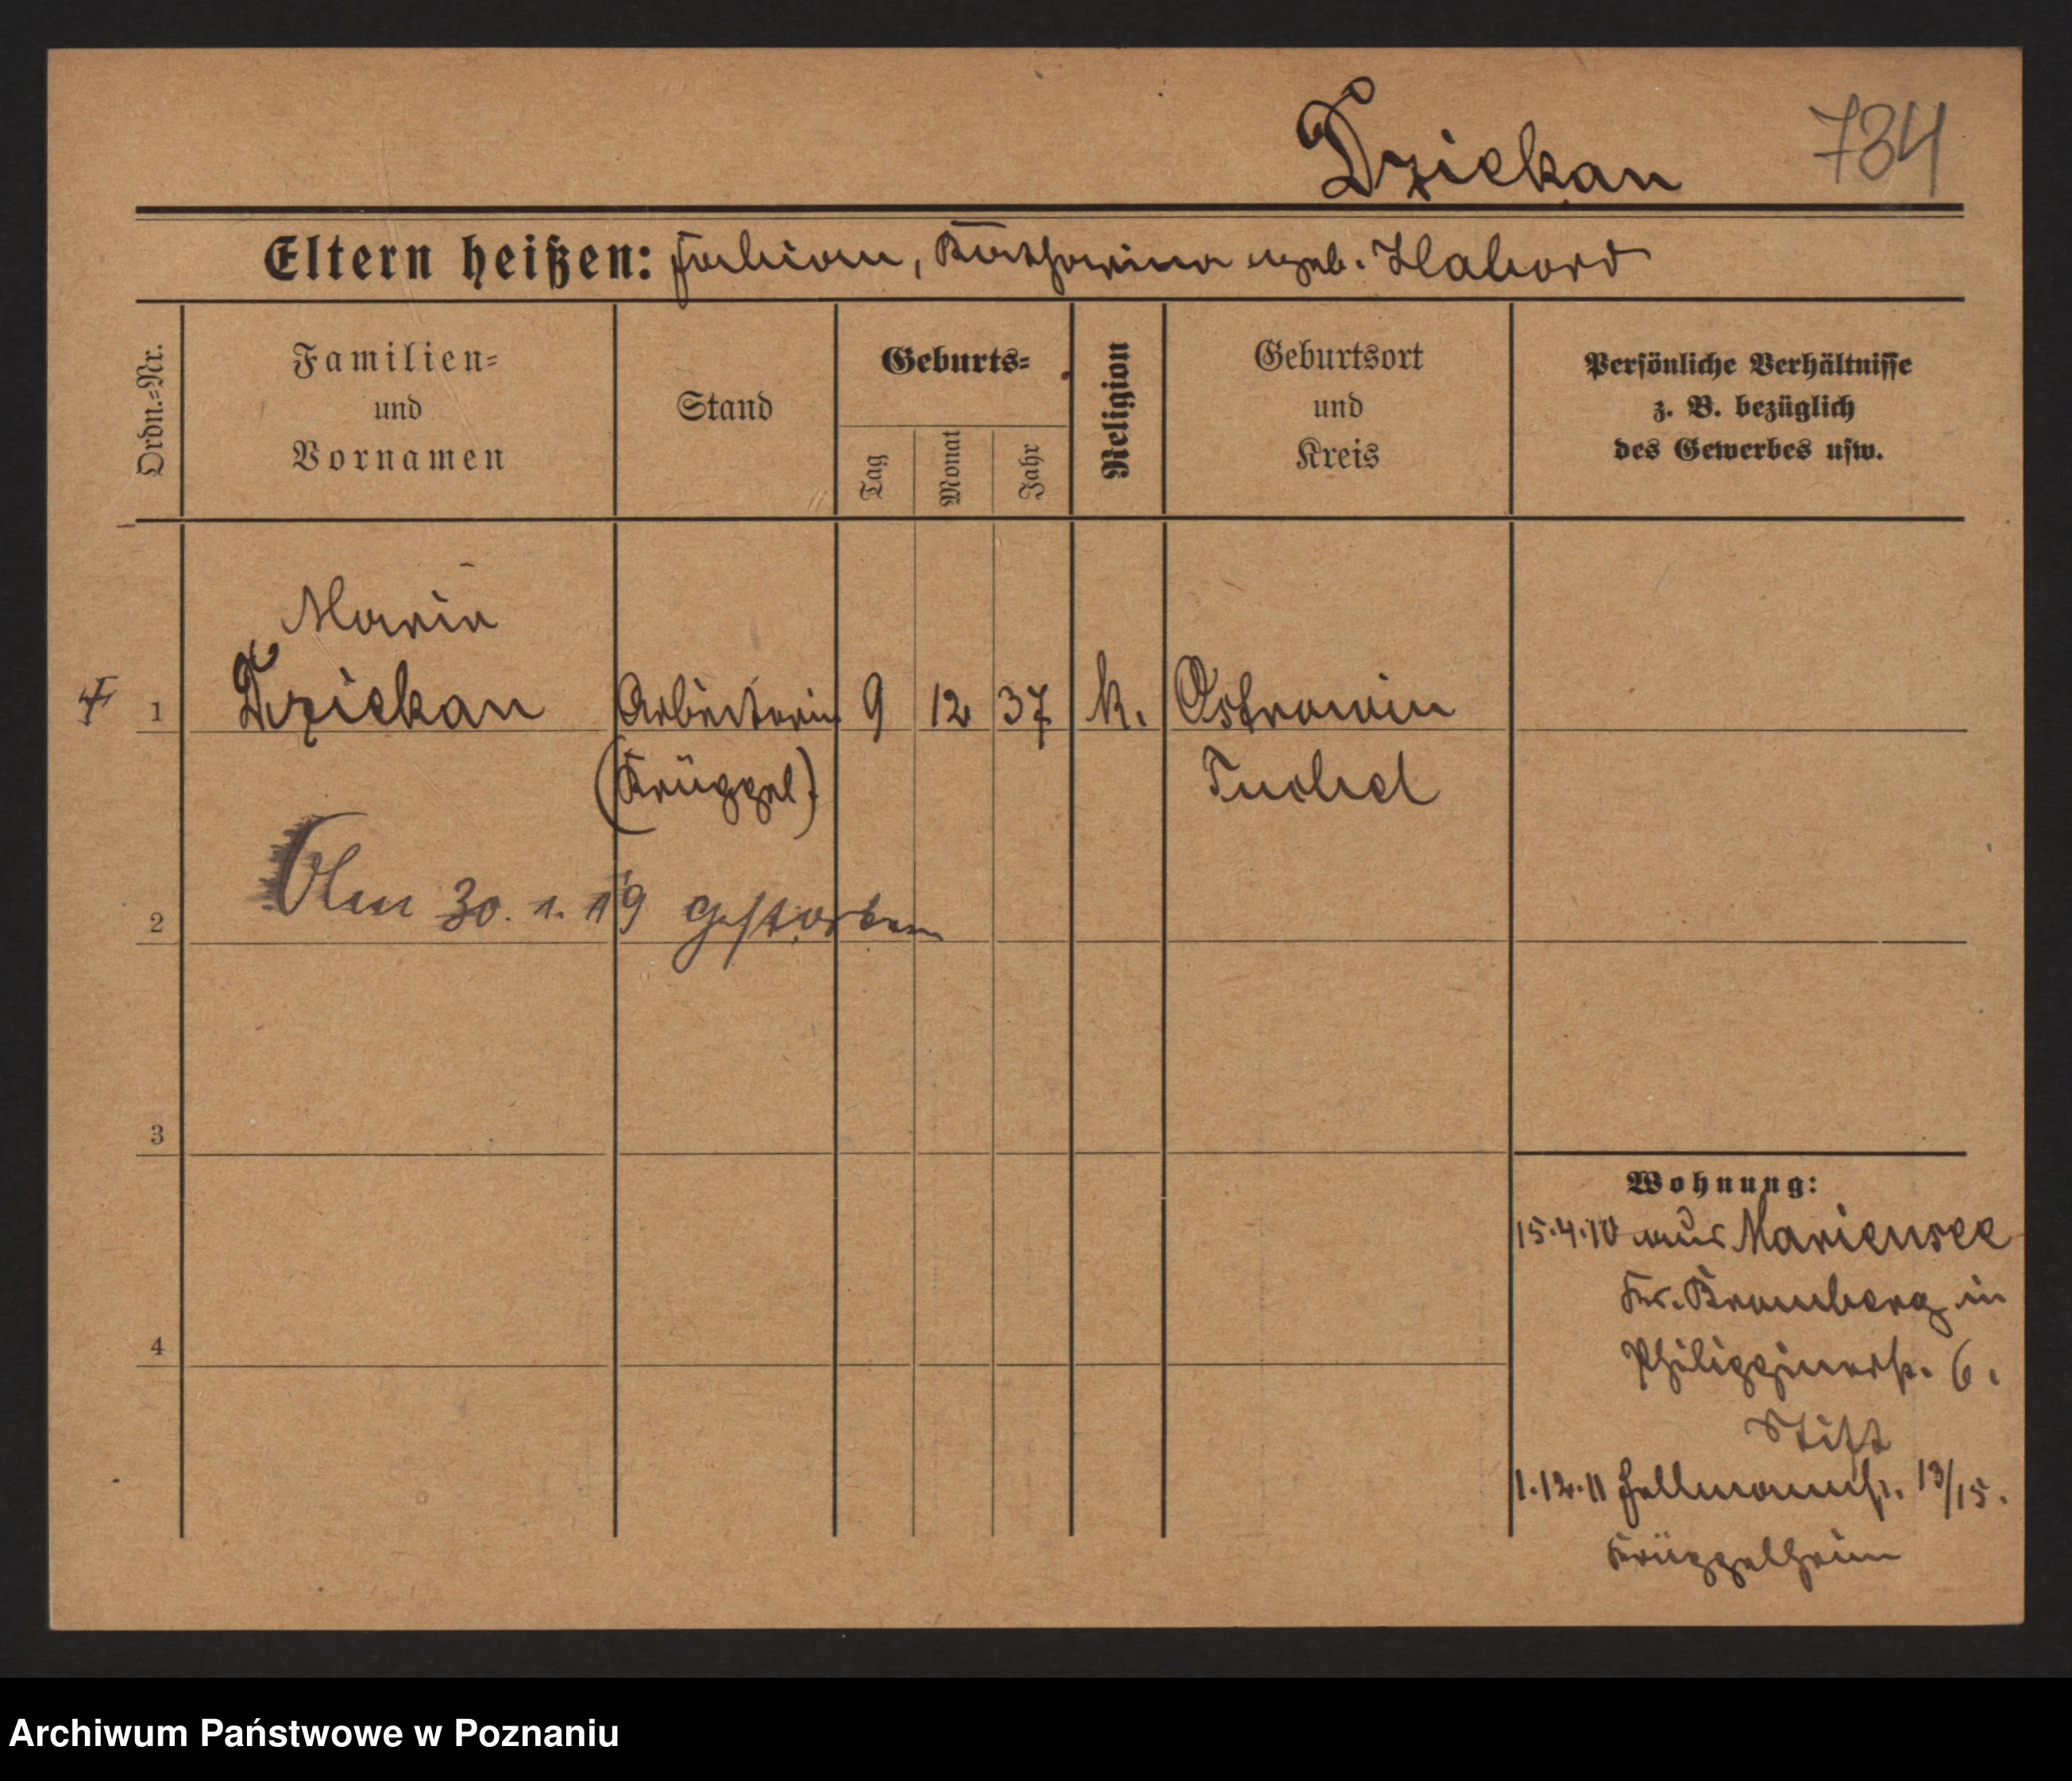 Dziekan 784
Eltern heißen: Fabian, Katharina geb. Habord
Ordn.=Nr.
Familien=
und
Vornamen
Stand
Geburts=
Tag
Monat
Jahr
Religion
Geburtsort
und
Kreis
Persönliche Verhältnisse
z. B. bezüglich
des Gewerbes usw.
Maria
1 Dziekan Arbeiterin 9 12 37 k. Ostrowin
(Krüppel) Tuchel
2 Am 30. 1. 19 gestorben
3
Wohnung:
15.4.10 aus Mariensee
Kr. Bromberg in
4
Philippinerstr. 6.
Stift
1.12.11 Hellmannstr. 13/15.
Krüppelheim
Archiwum Państwowe w Poznaniu